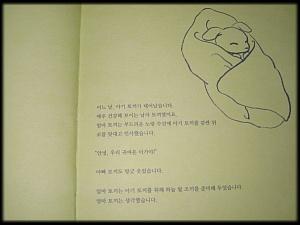 어느 날, 아기 토끼가 태어났습니다.
아주 건강해 보이는 남자 토끼였어요.
엄마 토끼는 부드러운 노랑 수건에 아기 토끼를 감싼 뒤
코를 맞대고 인사했습니다.
"안녕, 우리 귀여운 아가야!"
아빠 토끼도 방긋 웃었습니다.
엄마 토끼는 아기 토끼를 위해 하늘 빛 조끼를 준비해 두었습니다.
엄마 토끼는 생각했습니다.